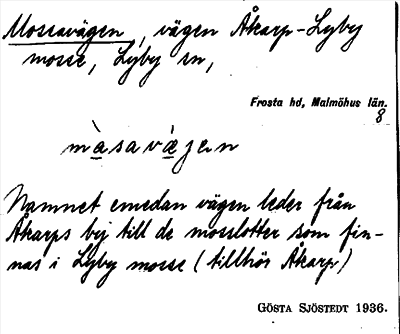 Mossavägen, vägen Åkarp-Lyby
mosse, Lyby sn,
Frosta hd, Malmöhus län.
8
màsavæ̀jen
Namnet emedan vägen leder från
Åkarps by till de mosslotter som fin-
nas i Lyby mosse (tillhör Åkarp)
GÖSTA SJÖSTEDT 1936.